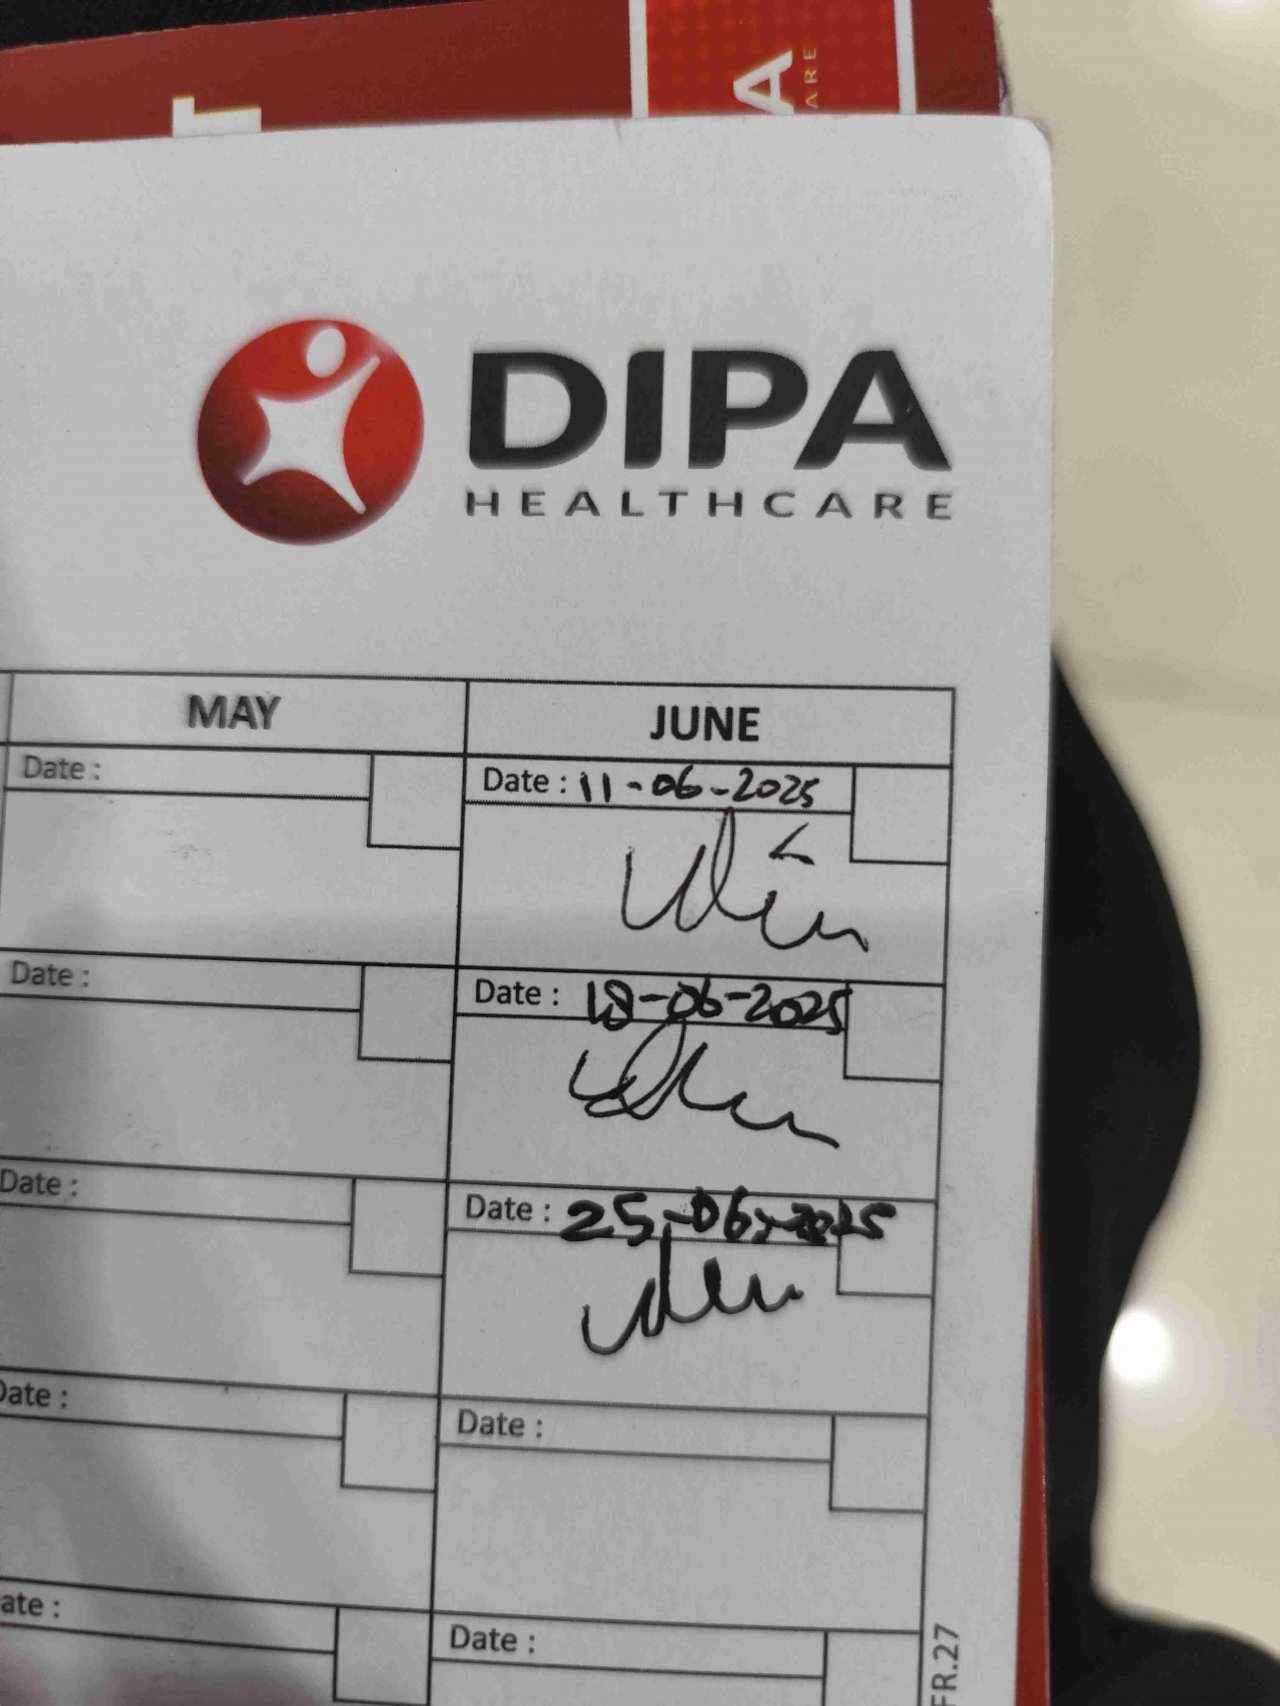 A
ARE
T
DIPA
HEALTHCARE
MAY JUNE
Date : Date : 11-06-2025
Date : Date : 18-06-2025
Date : Date : 25-06-2025
Date : Date :
ate : Date :
FR.27